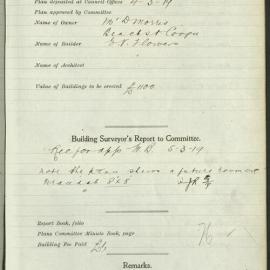 Plan deposited at Council Offices 4-3-19
Plan approved by Committee
Name of Owner Mr D Morris
Beach St Coogee
Name of Builder Flowers
Name of Architect
Value of Buildings to be erected £1100
Building Surveyor's Report to Committee.
Rec for app 5-3-19
Note the plan shows a future
8'x8
Report Book, folio
Plans Committee Minute Book, page
Building Fee Paid
Remarks.